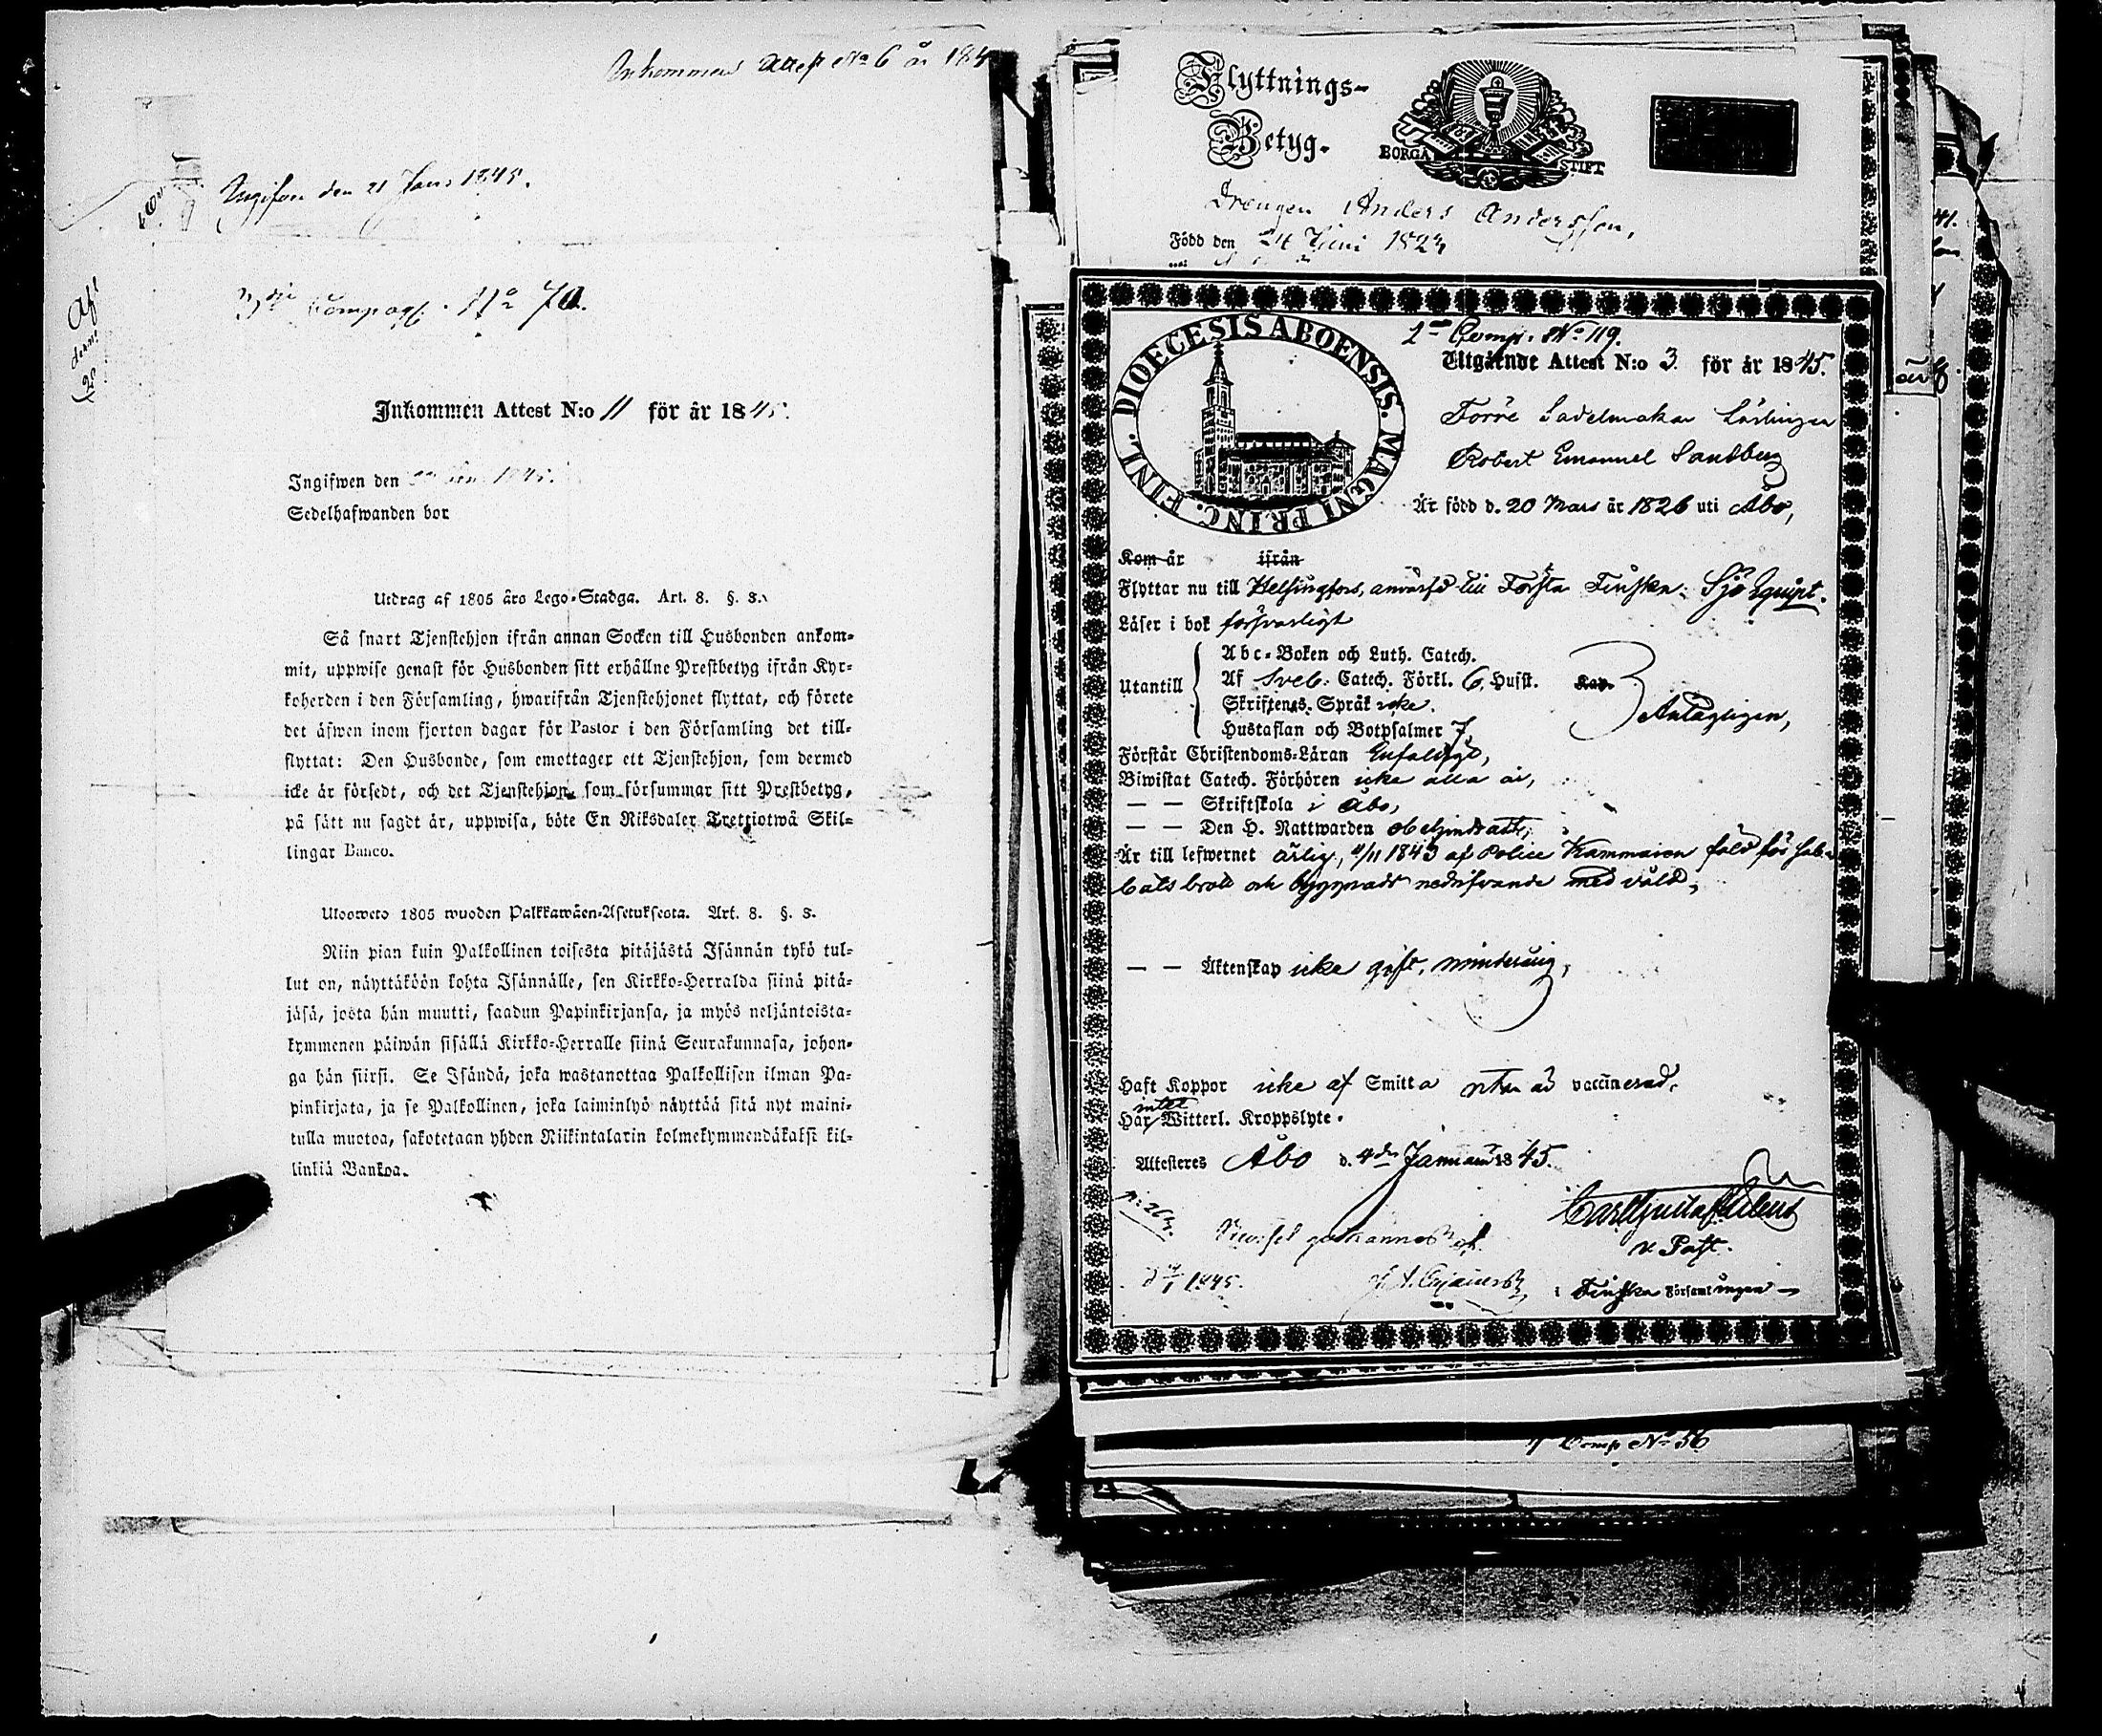 Inkommen Attest No 6 år 184
Ingifven den 21 Janu 1845.
Compag. No 70.
Inkommen Attest N:o 11 för år 1845.
Ingifwen den 1845.
Sedelhafwanden bor
Utdrag af 1805 års Lego-Stadga. Art. 8. §. 3.
Så snart Tjenstehjon ifrån annan Socken till Husbonden ankom-
mit, uppwise genast för Husbonden sitt erhållne Prestbetyg ifrån Kyr-
koherden i den Församling, hwarifrån Tjenstehjonet flyttat, och förete
det äfwen inom fjorton dagar för Pastor i den Församling det till-
flyttat: Den Husbonde, som emottager ett Tjenstehjon, som dermed
icke är försedt, och det Tjenstehjon, som försummar sitt Prestbetyg,
på sätt nu sagdt är, uppwisa, böte En Riksdaler Trettiotwå Skil-
lingar Banco.
Ulosweto 1805 wuoden Palkkawäen-Asetuksesta. Art. 8. §. 3.
Niin pian kuin Palkollinen toisesta pitäjästä Isännän tykö tul-
lut on, näyttäköön kohta Isännälle, sen Kirkko-Herralda siinä pitä-
jäsä, josta hän muutti, saadun Papinkirjansa, ja myös neljäntoista-
kymmenen päiwän sisällä Kirkko-Herralle siinä Seurakunnasa, johon-
ga hän siirsi. Se Isändä, joka wastanottaa Palkollisen ilman Pa-
pinkirjata, ja se Palkollinen, joka laiminlyö näyttää sitä nyt maini-
tulla muotoa, sakotetaan yhden Riikintalarin kolmekymmendäkaksi kil-
linkiä Bankoa.
Flyttnings-
Betyg.
BORGÅ STIFT
Drengen Anders Andersson,
Född den 24 Juni 1824
DIOECESIS ABOENSIS. MAGNI PRINC. FINL.
1 Comp. No 119.
Utgående Attest N:o 3 för år 1845.
Förre Sadelmakar Lärlingen
Robert Emanuel Sandberg
Är född d. 20 Mars år 1826 uti Åbo,
Kom år ifrån
Flyttar nu till Helsingfors, antagen till Första Finska Sjö Equipt.
Läser i bok försvarligt
Utantill
Abc-Boken och Luth. Catech.
Af Sveb. Catech. Förkl. 6, Husst. Kap.
Skriftenes. Språk icke.
Hustaflan och Botpsalmer 7,
Antagligen,
Förstår Christendoms-Läran Enfaldigt,
Biwistat Catech. Förhören icke alla år,
— — Skriftskola i Åbo,
— — Den H. Nattwarden obehindradt,
Är till lefwernet ärlig, 1843 af Police Kammaren fäld för sab-
bats brott och byggnads nedrifvande med våld,
— — Äktenskap icke gift, minderårig,
Haft Koppor icke af Smitta utan är vaccinerad.
Har intet Witterl. Kroppslyte.
Attesteras Åbo d. 4de Januari 1845.
v. Past.
i Finska Församlingen —
1845.
Comp No 56